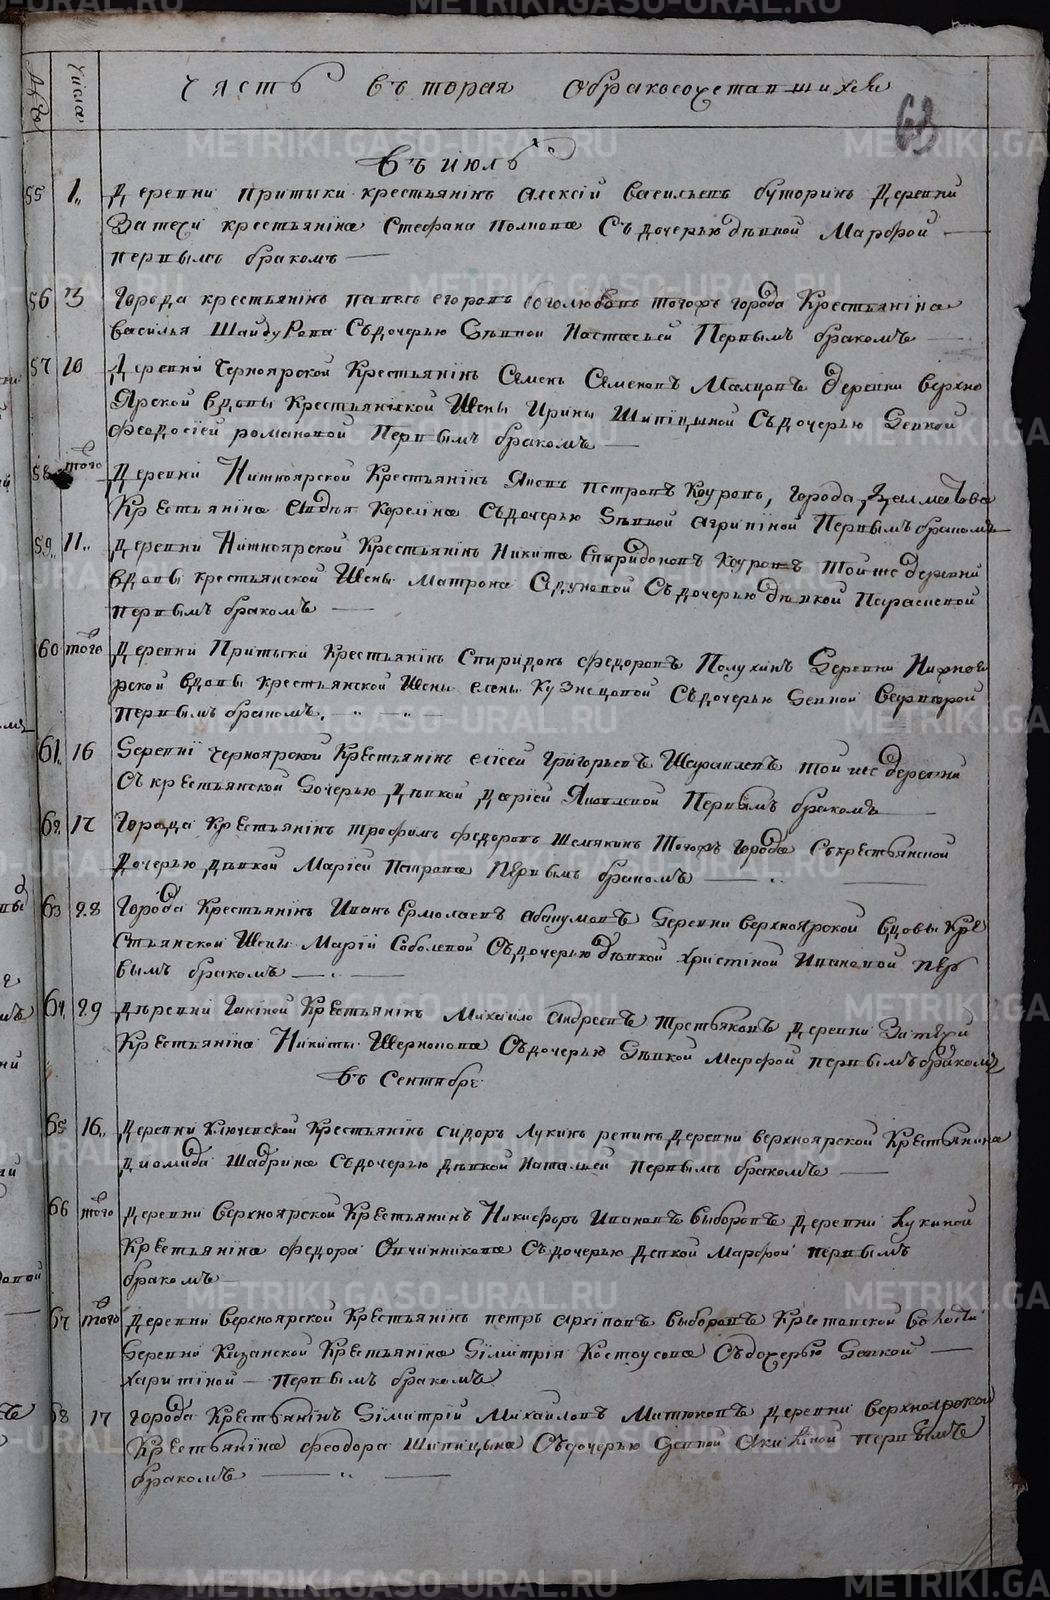 Часть вторая о бракосочетавшихся
63
Числа
Въ июлѣ
55 1. Деревни Притыки крестьянинъ Алексiй Васильевъ Буторинъ деревни
Затечи крестьянiна Стефана Попова съ дочерью дѣвкой Марфой
первымъ бракомъ
56 3 Города крестьянiнъ Павелъ Егоровъ Боголюбовъ тогожъ города крестьянiна
Василья Шайдурова съ дочерью дѣвкой Настасьей первымъ бракомъ
57 10 Деревни Черноярской крестьянiнъ Семенъ Семеновъ Малцовъ деревни Верхно
ярской вдовы крестьянской жены Ирины Шипiцыной съ дочерью девкой
Феодосiей Романовой первымъ бракомъ
58 того Деревни Нижноярской крестьянiнъ Яковъ Петровъ Коуровъ, города Далматова
крестьянiна Андрея Карелiна съ дочерью дѣвкой Агрипiной первымъ бракомъ
59 11. Деревни Нижноярской крестьянiнъ Никита Спиридоновъ Коуровъ той же деревни
вдовы крестьянской жены Матрона съ дочерью дѣвкой Парасковой
первымъ бракомъ
60 того Деревни Притыки крестьянiнъ Спиридонъ Федоровъ Полухинъ деревни Нижноя
рской вдовы крестьянской жены Елены Кузнецовой съ дочерью девкой
первымъ бракомъ.
61. 16 Деревнi Черноярской крестьянiнъ Елiсей Григорьевъ той же деревни
съ крестьянской дочерью дѣвкой Дарiей Яковлевой первымъ бракомъ
62. 17 Города крестьянiнъ Трофимъ Федоровъ Шемякинъ тогожъ города съ крестьянской
дочерью дѣвкой Марiей Петрова первымъ бракомъ
63 28 Города крестьянiнъ Иванъ Ермолаевъ Абакумовъ деревни Верхноярской вдовы кре
стьянской жены Марiи Соболевой съ дочерью дѣвкой Христiной Ивановой пер
вымъ бракомъ
64. 29 Деревни Ганiной крестьянiнъ Михайло Андреевъ Третьяковъ деревни Затечи
крестьянiна Никиты съ дочерью дѣвкой Марфой первымъ бракомъ
Въ сентябре
65 16.. Деревни Ключевской крестьянiнъ Сидоръ Лукинъ Репинъ деревни Верхноярской крестьянина
Дiомида Шадрина съ дочерью дѣвкой Натальей первымъ бракомъ
66 того Деревни Верхноярской крестьянинъ Никифоръ Ивановъ Выборовъ деревни Лукиной
крестьянiна Федора Овчинникова съ дочерью девкой Марфой первымъ
бракомъ
67 того Деревни Верхноярской крестьянiнъ Петръ Архiповъ Выборовъ Крестовской волости
деревни Казанской крестьянiна Дiмитрiя Костоусова съ дочерью девкой
Харитiной первымъ бракомъ
68 17 Города крестьянiнъ Дiмитрiй Михайловъ Матюковъ деревни Верхноярской
крестьянiна Феодора Шипицына съ дочерью девкой Акилiной первымъ
бракомъ
METRIKI.GASO-URAL.RU